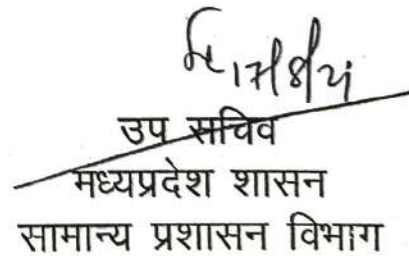 17/8/21
उप सचिव
मध्यप्रदेश शासन
सामान्य प्रशासन विभाग